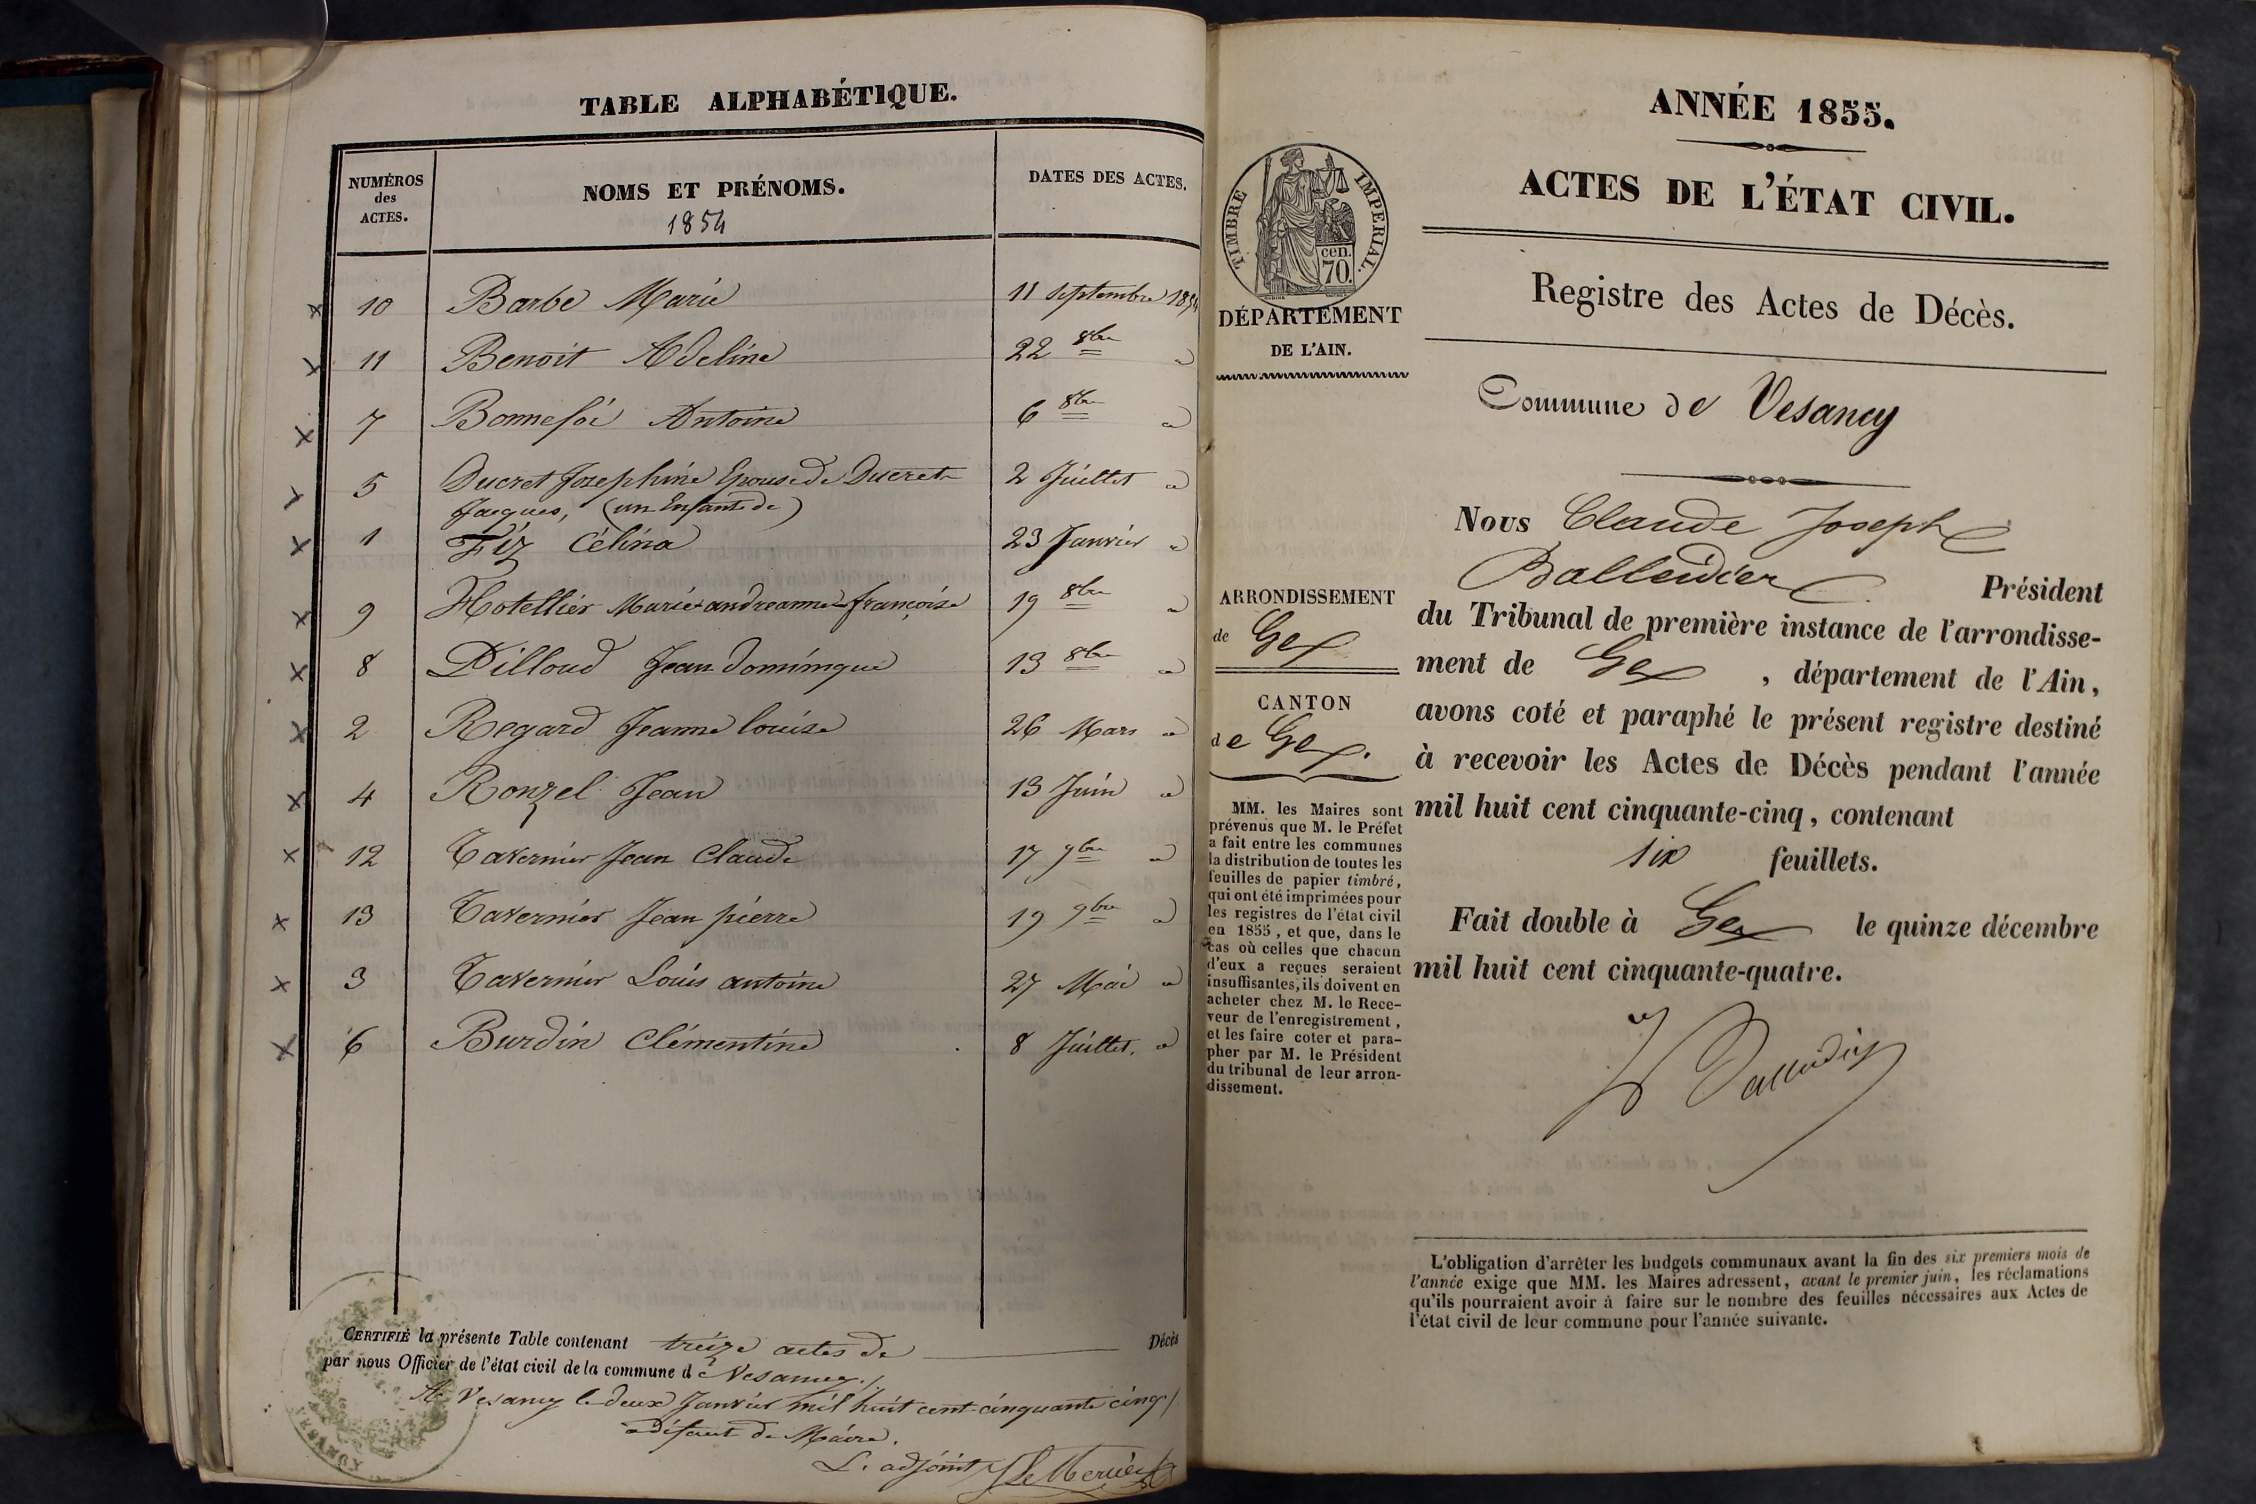 TABLE ALPHABÉTIQUE.
NUMÉROS des ACTES.
NOMS ET PRÉNOMS.
1854
DATES DES ACTES.
10 Barbe Marie 11 septembre 1854
11 Benoit Adeline 22 8bre d
7 Bonnefoi Antoine 6 8bre d
5 Ducret Josephine Epouse de Ducret 2 Juillet d
Jacques, (un Enfant de)
1 Fiz Célina 23 Janvier d
9 Hotellier Marie andreanne françoise 19 8bre d
8 Pilloud Jean dominique 13 8bre d
2 Regard Jeanne louise 26 Mars d
4 Ronzel Jean 13 Juin d
12 Tavernier Jean Claude 17 9bre d
13 Tavernier Jean pierre 19 9bre d
3 Tavernier Louis antoine 27 Mai d
6 Burdin Clémentine 8 Juillet. d
CERTIFIÉ la présente Table contenant treize actes de Décès
par nous Officier de l'état civil de la commune de Vesancy./.
A Vesancy le deux Janvier mil huit cent cinquante cinq/
a défaut de Maire.
L. adjoint
VESANCY
ANNÉE 1855.
ACTES DE L'ÉTAT CIVIL.
Registre des Actes de Décès.
Commune de Vesancy
TIMBRE IMPERIAL.
cen.
70.
DÉPARTEMENT
DE L'AIN.
ARRONDISSEMENT
de Gex
CANTON
de Gex.
MM. les Maires sont
prévenus que M. le Préfet
a fait entre les communes
la distribution de toutes les
feuilles de papier timbré,
qui ont été imprimées pour
les registres de l'état civil
en 1855, et que, dans le
cas où celles que chacun
d'eux a reçues seraient
insuffisantes, ils doivent en
acheter chez M. le Rece-
veur de l'enregistrement,
et les faire coter et para-
pher par M. le Président
du tribunal de leur arron-
dissement.
Nous Claude Joseph
Balleidier Président
du Tribunal de première instance de l'arrondisse-
ment de Gex, département de l'Ain,
avons coté et paraphé le présent registre destiné
à recevoir les Actes de Décès pendant l'année
mil huit cent cinquante-cinq, contenant
six feuillets.
Fait double à Gex le quinze décembre
mil huit cent cinquante-quatre.
L'obligation d'arrêter les budgets communaux avant la fin des six premiers mois de
l'année exige que MM. les Maires adressent, avant le premier juin, les réclamations
qu'ils pourraient avoir à faire sur le nombre des feuilles nécessaires aux Actes de
l'état civil de leur commune pour l'année suivante.